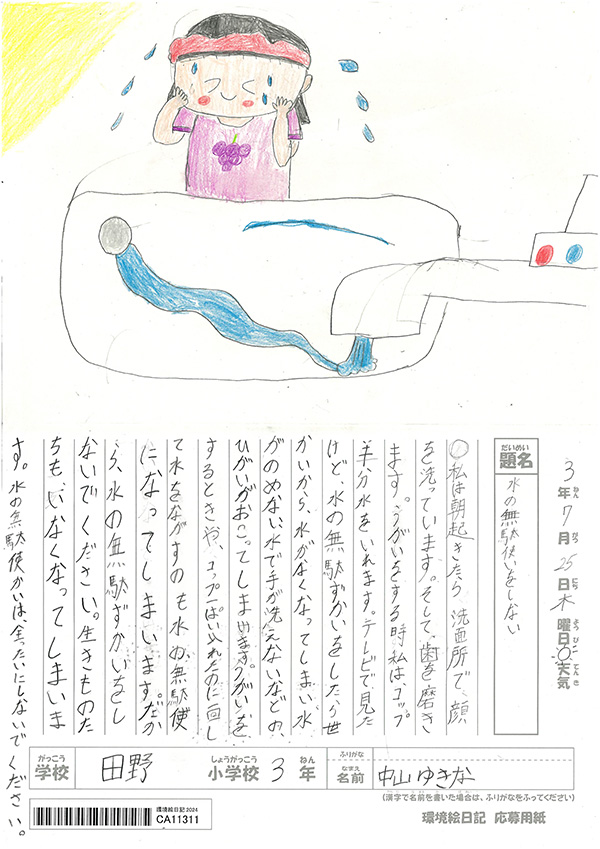 3年ねん7月がつ25日にち木曜日ようび 天気てんき
題名だいめい
水の無駄使いをしない
私は朝起きたら、洗面所で、顔
を洗っています。そして、歯を磨き
ます。うがいをする時私は、コップ
半分水をいれます。テレビで、見た
けど、水の無駄ずかいをしたら世
かいから、水がなくなってしまい、水
がのめない、水で手が洗えないなどの、
ひがいがおこってしまいます。うがいを
するときや、コップ一ぱい入れたのに一回し
て水をながすのも水の無駄使
いになってしまいます。だか
ら、水の無駄ずかいをし
ないでください。生きものた
ちも、いなくなってしまいま
す。水の無駄使かいは、ぜったいにしないでください。
学校がっこう 田野 小学校しょうがっこう 3年ねん
ふりがな
名前なまえ 中山ゆきな
(漢字で名前を書いた場合は、ふりがなをふってください)
環境絵日記2024
CA11311
環境絵日記 応募用紙